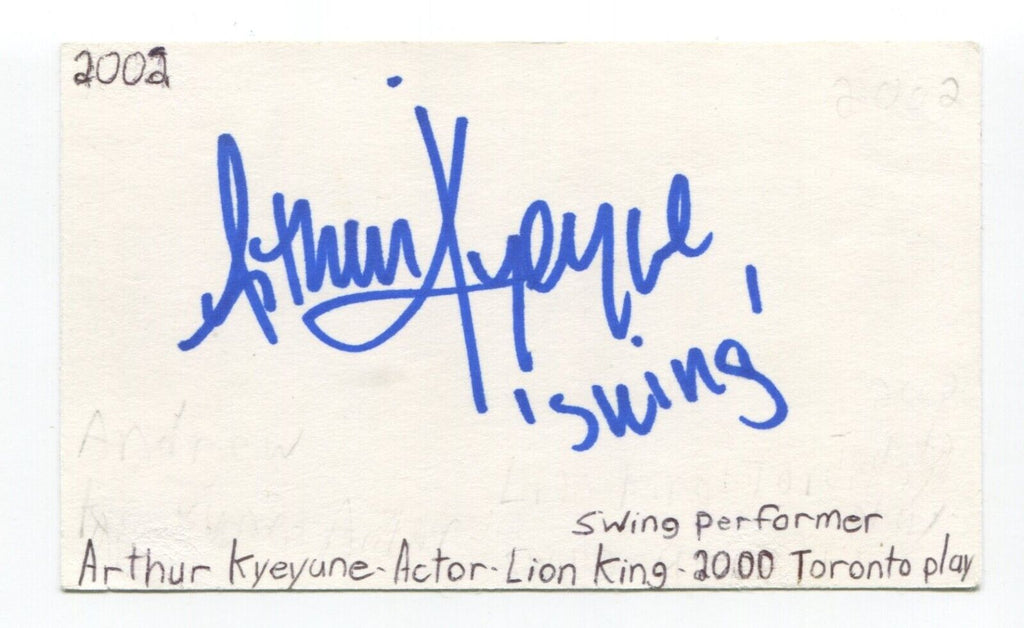 2002
2002
Arthur Kyeyune
'swing'
Andrew
swing performer
Arthur Kyeyune - Actor - Lion King - 2000 Toronto play